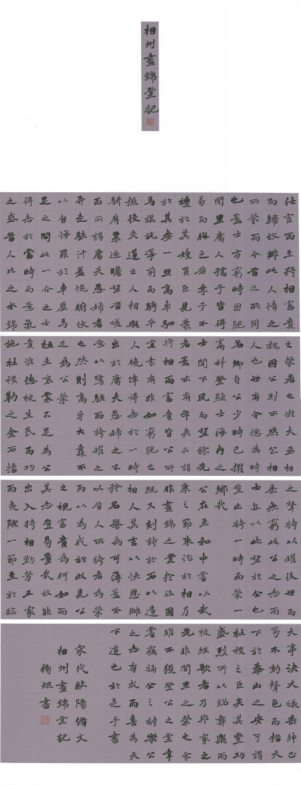 相州晝錦堂記
仕宦而至將相富貴
而歸故鄉此人情之
所榮而今昔之所同
也蓋士方窮時困阨
閭里庸人孺子皆得
易而侮之若季子不
禮於其嫂買臣見棄
於其妻一旦高車駟
馬旗旄導前而騎卒
擁後夾道之人相與
駢肩累迹瞻望咨嗟
而所謂庸夫愚婦者
奔走駭汗羞愧俯伏
以自悔罪於車塵馬
足之間此一介之士
得志於當時而意氣
之盛昔人比之衣錦
之榮者也惟大丞相
魏國公則不然公相
人也世有令德為時
名卿自公少時已擢
高科登顯士海內之
士聞下風而望餘光
者蓋亦有年矣所謂
將相而富貴皆公所
宜素有非如窮阨之
人僥倖得志於一時
出於庸夫愚婦之不
意以驚駭而夸耀之
也然則高牙大纛不
足為公榮
桓圭袞冕不足為公
貴惟德被生民而功
施社稷勒之金石播
之聲詩以耀後世而
垂無窮此公之志而
士亦以此望於公也
豈止誇一時而榮一
鄉哉
公在至和中嘗以武
康之節來治於相乃
作晝錦之堂於後圃
既又刻詩於石以遺
相人其言以快恩讎
矜名譽為可薄蓋不
以昔人所誇者為榮
而以為戒於此見公
之視富貴為何如而
其志豈易量哉故能
出入將相勤勞王家
而夷險一節至於臨
大事決大議垂紳正
笏不動聲色而措天
下於泰山之安可謂
社稷之臣矣其豐功
盛烈所以銘彝鼎而
被絃歌者乃邦家之
光非閭里之榮也余
雖不獲登公之堂幸
嘗竊誦公之詩樂公
之志有成而喜為天
下道也於是乎書
宋代歐陽脩文
相州晝錦堂記
楊 書